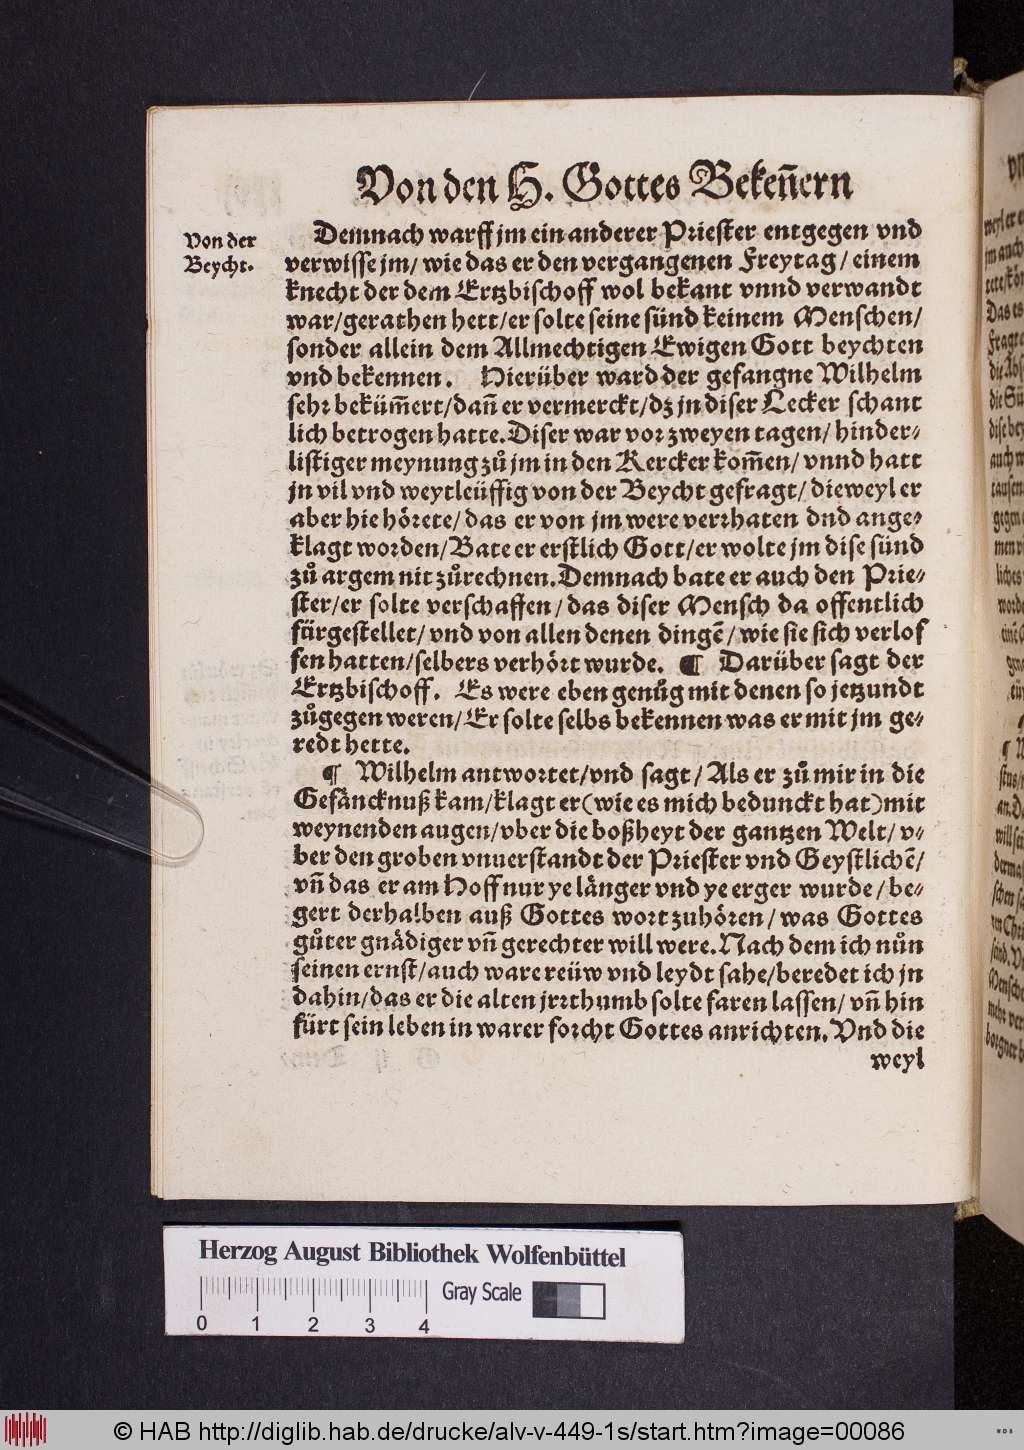 Von den H. Gottes Beken̄ern
Von der
Beycht.
Demnach warff jm ein anderer Priester entgegen vnd
verwisse jm/ wie das er den vergangenen Freytag/ einem
knecht der dem Ertzbischoff wol bekant vnnd verwandt
war/gerathen hett/er solte seine sünd keinem Menschen/
sonder allein dem Allmechtigen Ewigen Gott beychten
vnd bekennen. Hierüber ward der gefangne Wilhelm
sehr beküm̄ert/dan̄ er vermerckt/dz jn diser Lecker schant
lich betrogen hatte. Diser war vor zweyen tagen/ hinder-
listiger meynung zů jm in den Kercker kom̄en/ vnnd hatt
jn vil vnd weytleüffig von der Beycht gefragt/ dieweyl er
aber hie hörete/ das er von jm were verrhaten dnd ange-
klagt worden/Bate er erstlich Gott/er wolte jm dise sünd
zů argem nit zůrechnen. Demnach bate er auch den Prie-
ster/er solte verschaffen/ das diser Mensch da offentlich
fürgestellet/ vnd von allen denen dingē/ wie sie sich verlof
fen hatten/selbers verhört wurde. ¶ Darüber sagt der
Ertzbischoff. Es were eben genůg mit denen so jetzundt
zůgegen weren/ Er solte selbs bekennen was er mit jm ge-
redt hette.
¶ Wilhelm antwortet/vnd sagt/ Als er zů mir in die
Gefäncknuß kam/klagt er (wie es mich bedunckt hat) mit
weynenden augen/vber die boßheyt der gantzen Welt/ v-
ber den groben vnuerstandt der Priester vnd Geystlichē/
vn̄ das er am Hoff nur ye länger vnd ye erger wurde/be-
gert derhalben auß Gottes wort zuhören/ was Gottes
gůter gnädiger vn̄ gerechter will were. Nach dem ich nůn
seinen ernst/auch ware reüw vnd leydt sahe/beredet ich jn
dahin/das er die alten jrrthumb solte faren lassen/ vn̄ hin
fürt sein leben in warer forcht Gottes anrichten. Vnd die
weyl
Herzog August Bibliothek Wolfenbüttel
Gray Scale
0 1 2 3 4
© HAB http://diglib.hab.de/drucke/alv-v-449-1s/start.htm?image=00086